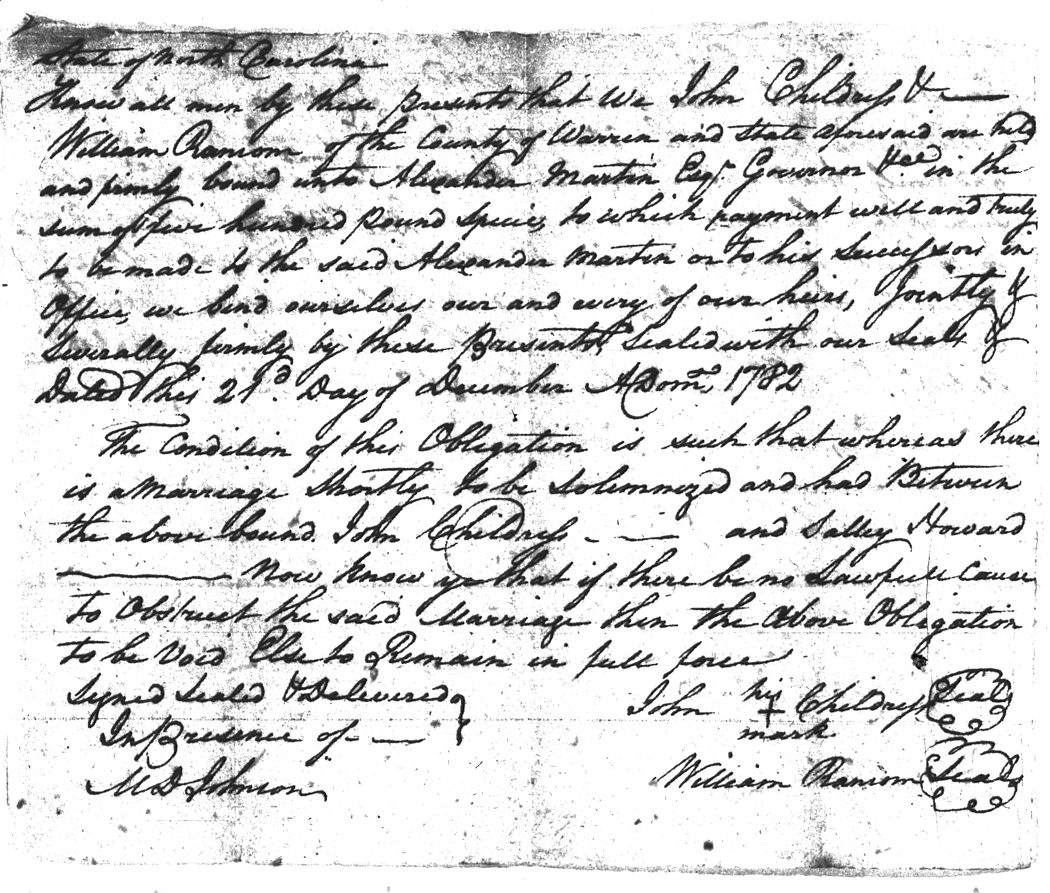 State of North Carolina
Know all men by these presents that We John Childress & —
William Ransom of the County of Warren and State aforesaid are held
and firmly bound unto Alexander Martin Esqr. Governor &ca in the
sum of five hundred pound specie, to which payment well and truly
to be made to the said Alexander Martin or to his Successors in
Office, we bind ourselves our and every of our heirs, Jointly &
Severally firmly by these Presents, Sealed with our Seals &
Dated this 21d. Day of December ADom. 1782
The Condition of this Obligation is such that whereas there
is a Marriage Shortly to be Solemnized and had Between
the above bound John Childress - — and Salley Howard
— Now Know ye that if there be no Lawfull Cause
to Obstruct the said Marriage then the above Obligation
to be Void Else to Remain in full force
Signed Sealed & Delivered
In Presence of - —
M D Johnson
John his + mark Childress Seal
William Ransom Seal